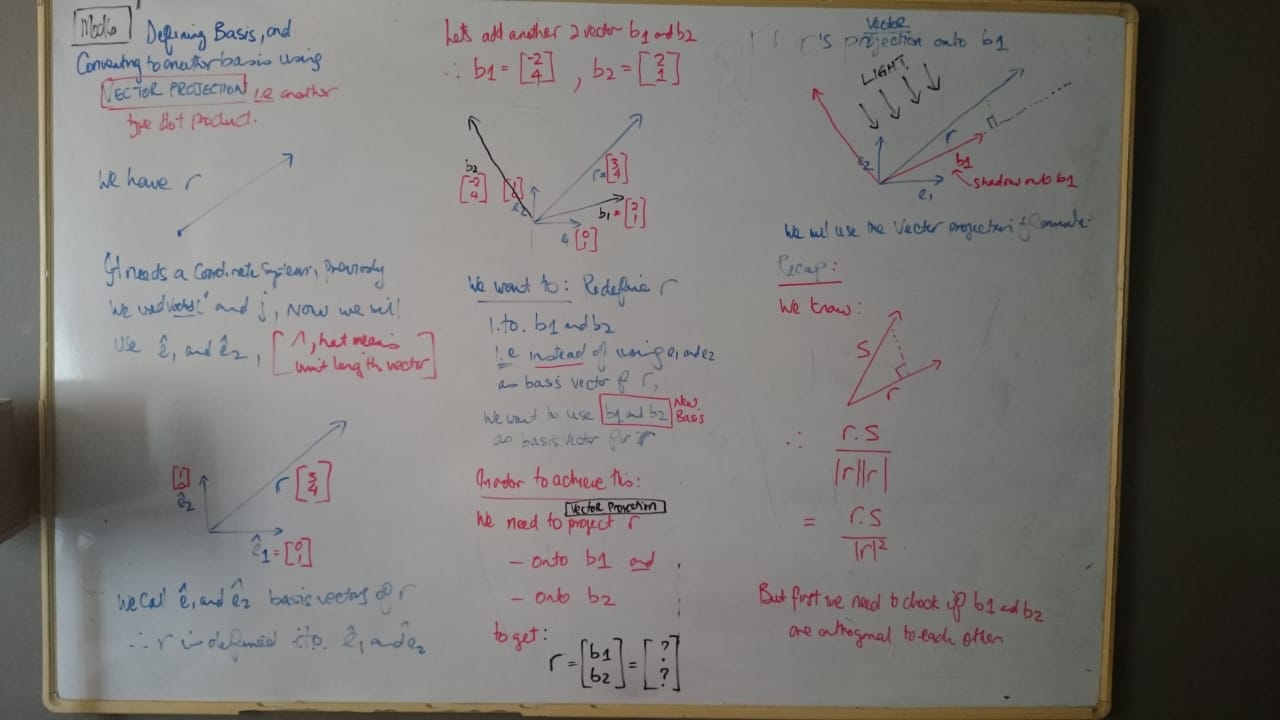 Mod6
Defining Basis, and
Converting to another basis using
VECTOR PROJECTION i.e another
type dot product.
We have r
It needs a Coordinate System, previously
We used vector i and j, Now we will
Use ê1 and ê2, [^, hat means
unit length vector]
r [3 4]
[1 0]
ê2
ê1 = [0 1]
We call ê1 and ê2 basis vectors of r
∴ r is defined i.t.o. ê1 and ê2
Lets add another 2 vector b1 and b2
∴ b1 = [-2 4] , b2 = [2 1]
b2
[-2 4]
e2
r = [3 4]
b1 = [2 1]
[0 1]
We want to: Redefine r
i.t.o. b1 and b2
i.e instead of using e1 and e2
as basis vector of r,
We want to use b1 and b2 New Basis
as basis vector for r
In order to achieve this:
Vector Projection
We need to project r
- onto b1 and
- onto b2
to get:
r = [b1 b2] = [? ?]
Vector
r's projection onto b1
LIGHT
r
b1
e2
shadow onto b1
e1
We will use the Vector projection formula:
Recap:
We know:
S
r
∴ r.s
|r||r|
= r.s
|r|²
But first we need to check if b1 and b2
are orthogonal to each other